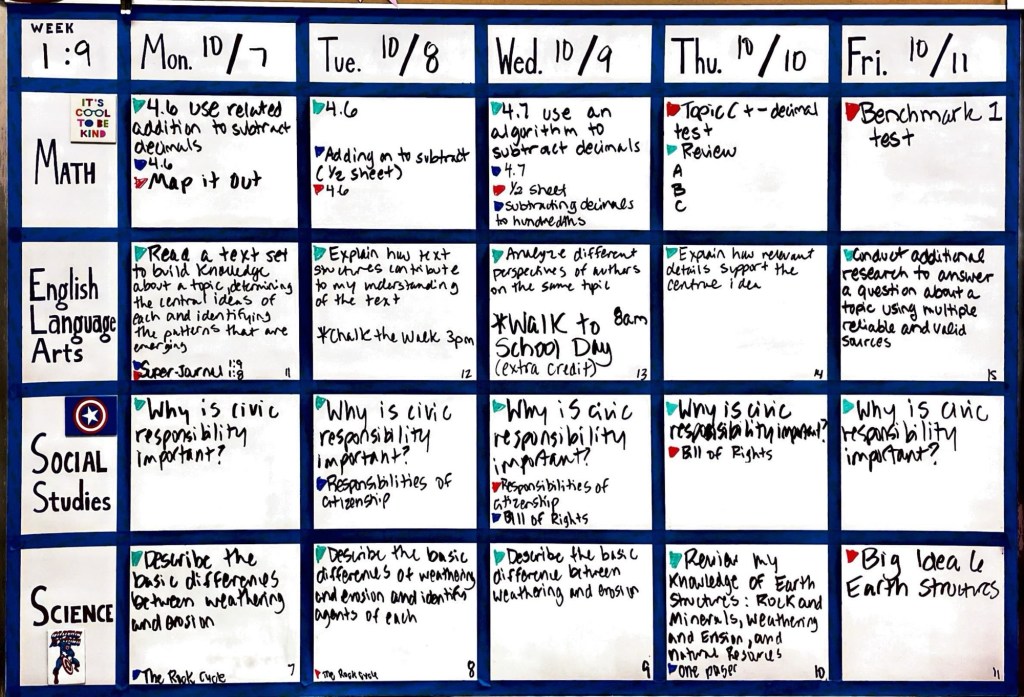 WEEK
1:9
Mon. 10/7
Tue. 10/8
Wed. 10/9
Thu. 10/10
Fri. 10/11
IT'S
COOL
TO BE
KIND
MATH
4.6 use related
addition to subtract
decimals
4.6
Map it out
4.6
Adding on to subtract
(1/2 sheet)
4.6
4.7 use an
algorithm to
subtract decimals
4.7
1/2 sheet
subtracting decimals
to hundredths
Topic C + - decimal
test
Review
A
B
C
Benchmark 1
test
English
Language
Arts
Read a text set
to build knowledge
about a topic, determining
the central ideas of
each and identifying
the patterns that are
emerging
Super-Journal 1:9
1:8
11
Explain how text
structures contribute
to my understanding
of the text
*Chalk the Walk 3pm
12
Analyze different
perspectives of authors
on the same topic
*Walk to 8am
School Day
(extra credit)
13
Explain how relevant
details support the
central idea
14
Conduct additional
research to answer
a question about a
topic using multiple
reliable and valid
sources
15
SOCIAL
Studies
Why is civic
responsibility
important?
Why is civic
responsibility
important?
Responsibilities of
citizenship
Why is civic
responsibility
important?
Responsibilities of
citizenship
Bill of Rights
Why is civic
responsibility important?
Bill of Rights
Why is civic
responsibility
important?
SCIENCE
Describe the
basic differences
between weathering
and erosion
The Rock Cycle
7
Describe the basic
differences of weathering
and erosion and identify
agents of each
The Rock Cycle
8
Describe the basic
difference between
weathering and erosion
9
Review my
knowledge of Earth
Structures: Rock and
Minerals, Weathering
and Erosion, and
Natural Resources
one pager
10
Big Idea 6
Earth Structures
11